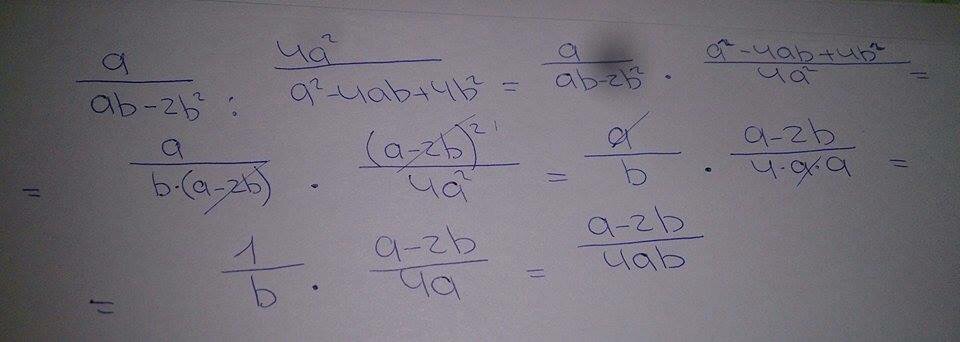 a/(ab-2b²) : 4a²/(a²-4ab+4b²) = a/(ab-2b²) · (a²-4ab+4b²)/4a² =
= a/(b·(a-2b)) · (a-2b)²/4a² = a/b · (a-2b)/(4·a·a) =
= 1/b · (a-2b)/4a = (a-2b)/4ab